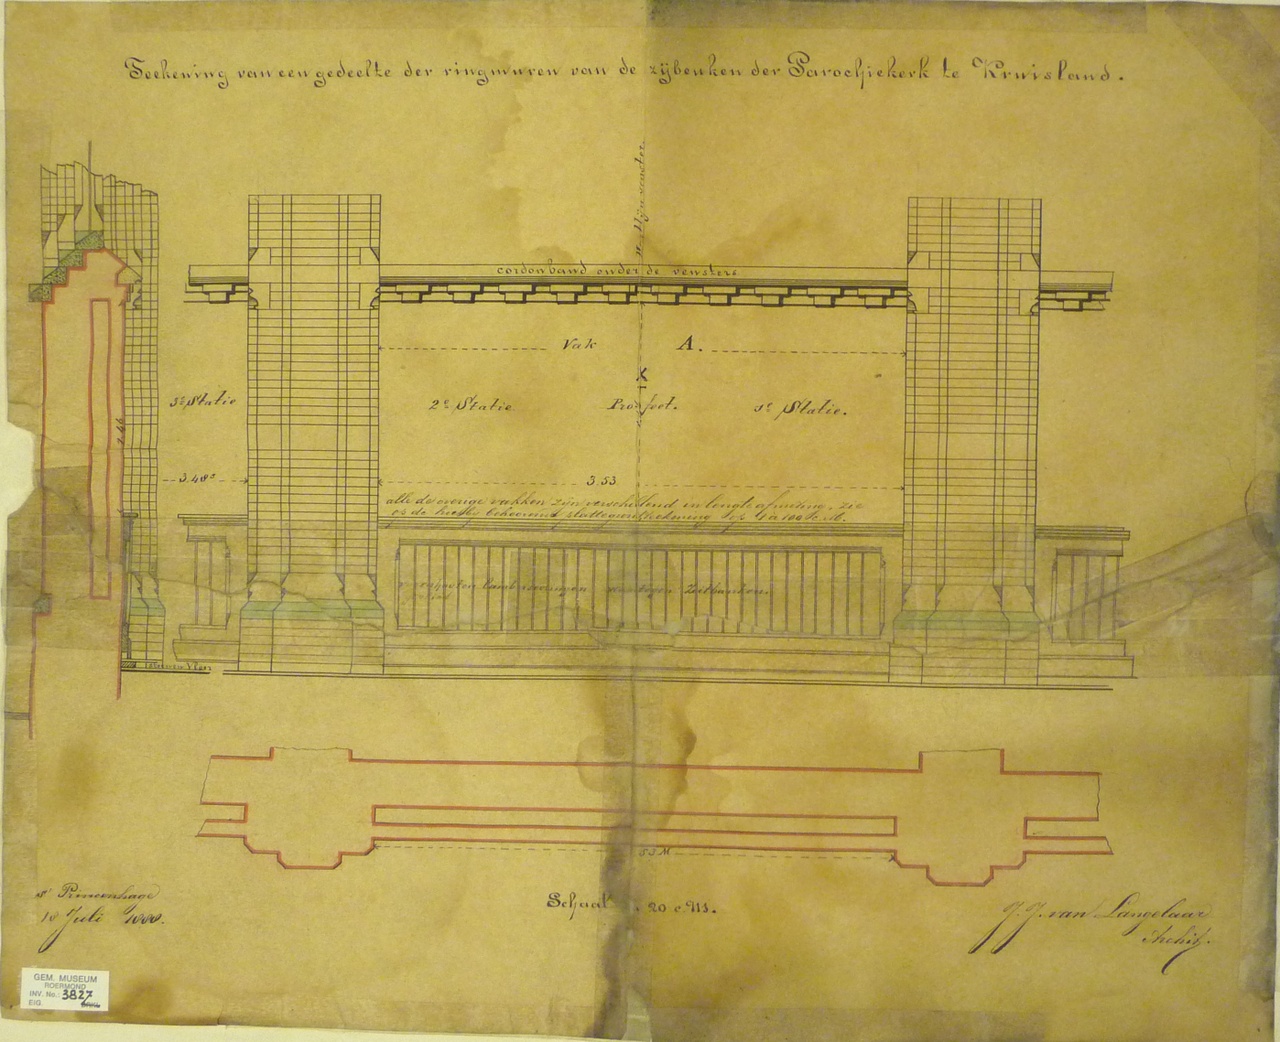 Teekening van een gedeelte der ringmuren van de zijbeuken der Parochiekerk te Kruisland.
venster
cordonband onder de vensters
Vak A.
X
3e Statie
2e Statie
Profeet.
1e Statie.
3.48⁵
3.53
alle de overige vakken zijn verschillend in lengte afmeting, zie
op de hierbij behoorende plattegrondteekening
lambriseeringen
Zitbanken
Schaal
20 c.M.
Princenhage
18 Juli
J. J. van Langelaar
Archit.
GEM. MUSEUM
ROERMOND
INV. No.: 3827
EIG.